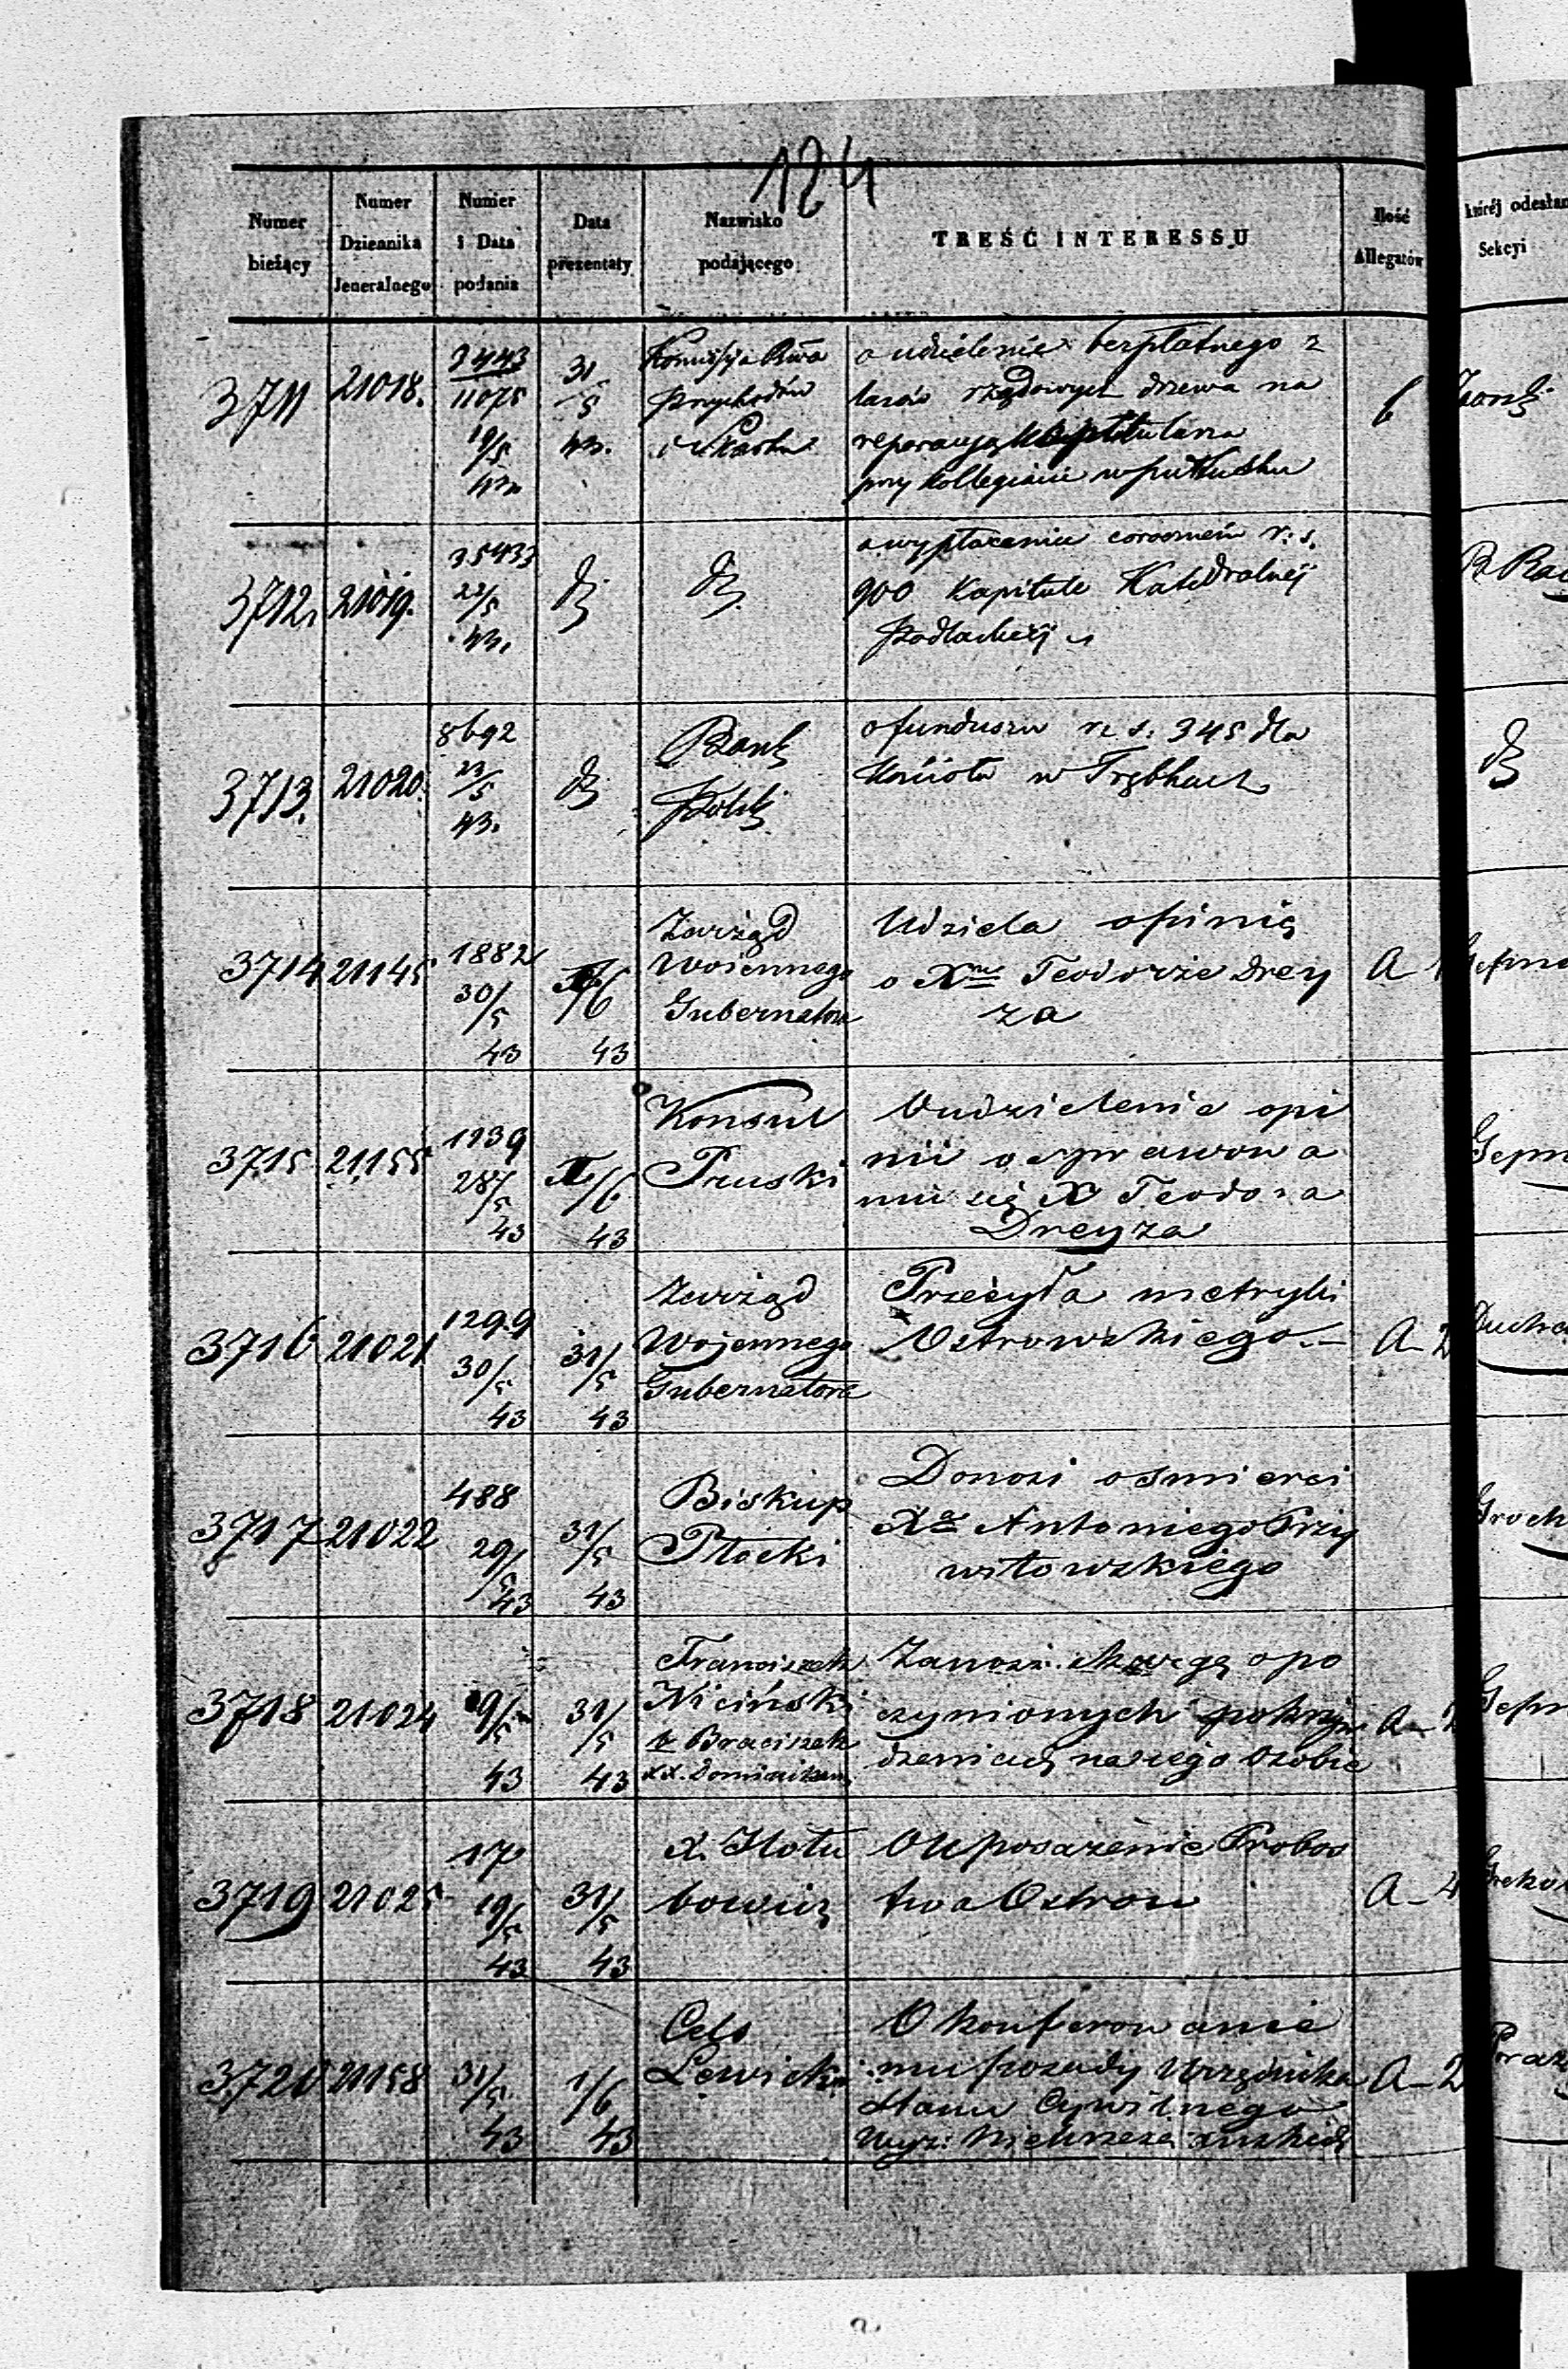 124
Numer bieżący
Numer Dziennika Jeneralnego
Numer i Data podania
Data prezentaty
Nazwisko podającego
TREŚĆ INTERESSU
Ilość Allegatów
której odesłan
Sekcyi
3711
21018.
3443
11075
19/5
43.
31
5
43.
Komissya
Przychodów
i Skarbu
o udzielenie bezpłatnego z
lasów rządowych drzewa na
reparacyą
przy Kollegiacie w Pułtusku
6
3712
21019.
35433
22/5
43.
dt
dt
o wypłacenie corocznem r. s.
900 Kapitule Katedralnej
Podlaskiej
3713.
21020.
8692
23/5
43.
dt
Bank
Polski
o funduszu r. s. 345 dla
Kościoła w Trębkach
dt
3714
21145
1882
30/5
43
/6
43
Zarząd
Woiennego
Gubernatora
Udziela opinię
o Xm Teodorze Drey
za
A
3715
21155
1239
28/5
43
/6
43
Konsul
Pruski
O udzielenie opi
nii o sprawowa
niu się X Teodora
Dreyza
3716
21021
1299
30/5
43
31/5
43
Zarząd
Wojennego
Gubernatora
Przesyła metryki
Ostrowskiego
A - 2
3717
21022
488
29/5
43
31/5
43
Biskup
Płocki
Donosi o śmierci
Xa Antoniego Przy
witowskiego
3718
21024
19/5
43
31/5
43
Franciszek
Niciński
Braciszek
XX. Dominikan
Zanosi skargę o po
czynionych pokrzyw
dzeniach na jego osobie
A -
3719
21025
17
19/5
43
31/5
43
X.
bowicz
O uposażenie Probos
twa Ostrow
A - 4
3720
21158
31/5
43
1/6
43
Cels
Lewicki
O konferowanie
mu posady Urzędnika
Stanu Cywilnego
wyz: Niechrześciańskich
A - 2